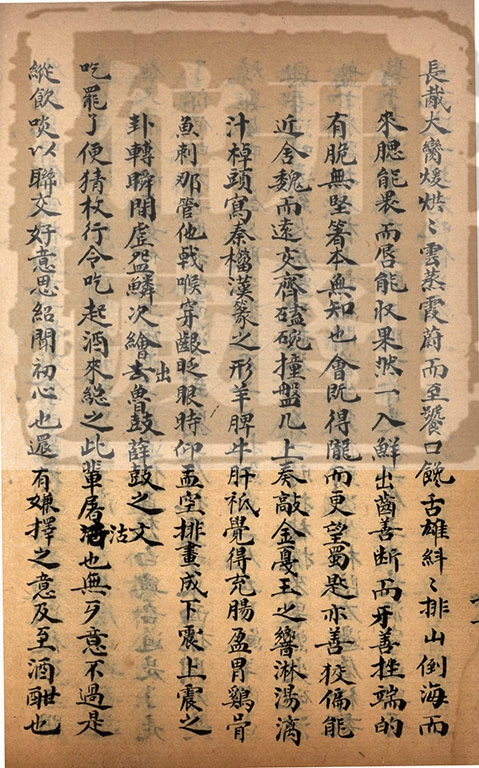 長胾大臠煖烘〻雲蒸霞蔚而至饕口饞舌雄糾〻排山倒海而
來腮能裹而唇能收果然一入鮮出齒善断而牙善挫端的
有脆無堅箸本無知也會既得隴而更望蜀匙亦善狡偏能
近舍魏而遠交齊磕碗撞盤几上奏敲金戞玉之響淋湯漓
汁棹頭寫秦檔漢篆之形羊脾牛肝祗覺得充腸盈胃鷄骨
魚刺那管他戟喉穿齦眨眼時仰盂空排畫成下震上震之
卦轉瞬間虛盌鱗次繪出去費鼓薛鼓之文
吃罷了便猜枚行令吃起酒來總之此輩屠沽也無歹意不過是
縱飲啖以聯交好意思紹開初心也還有嫌擇之意及至酒酣也